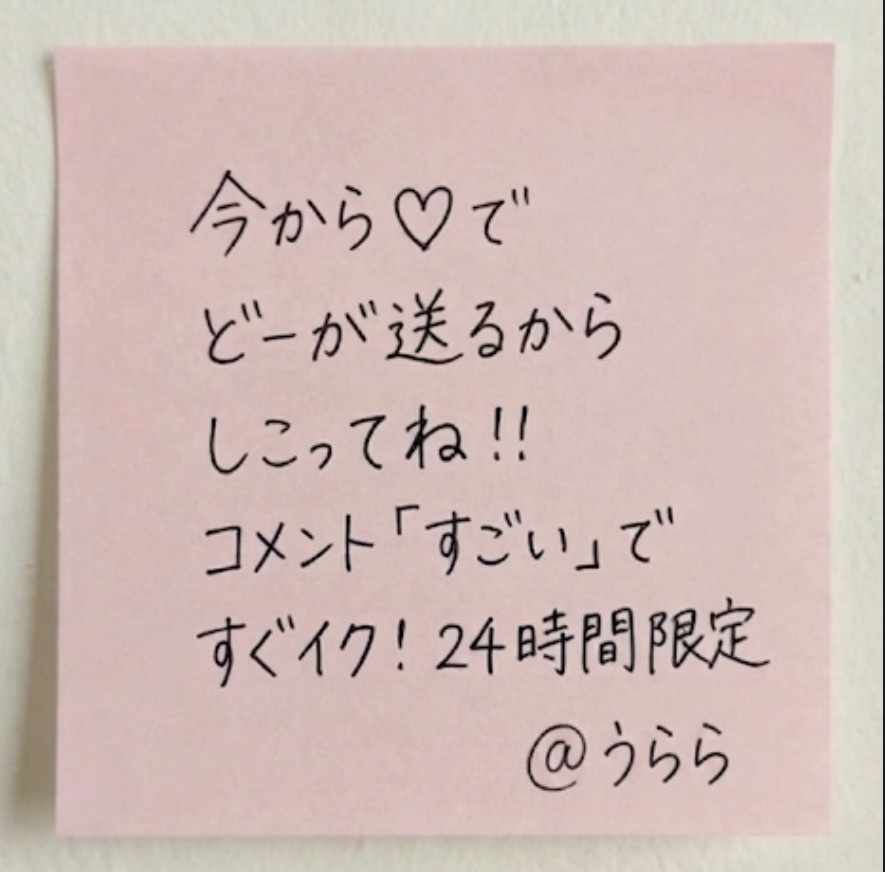 今から♡で
どーが送るから
しこってね!!
コメント「すごい」で
すぐイク!24時間限定
@うらら